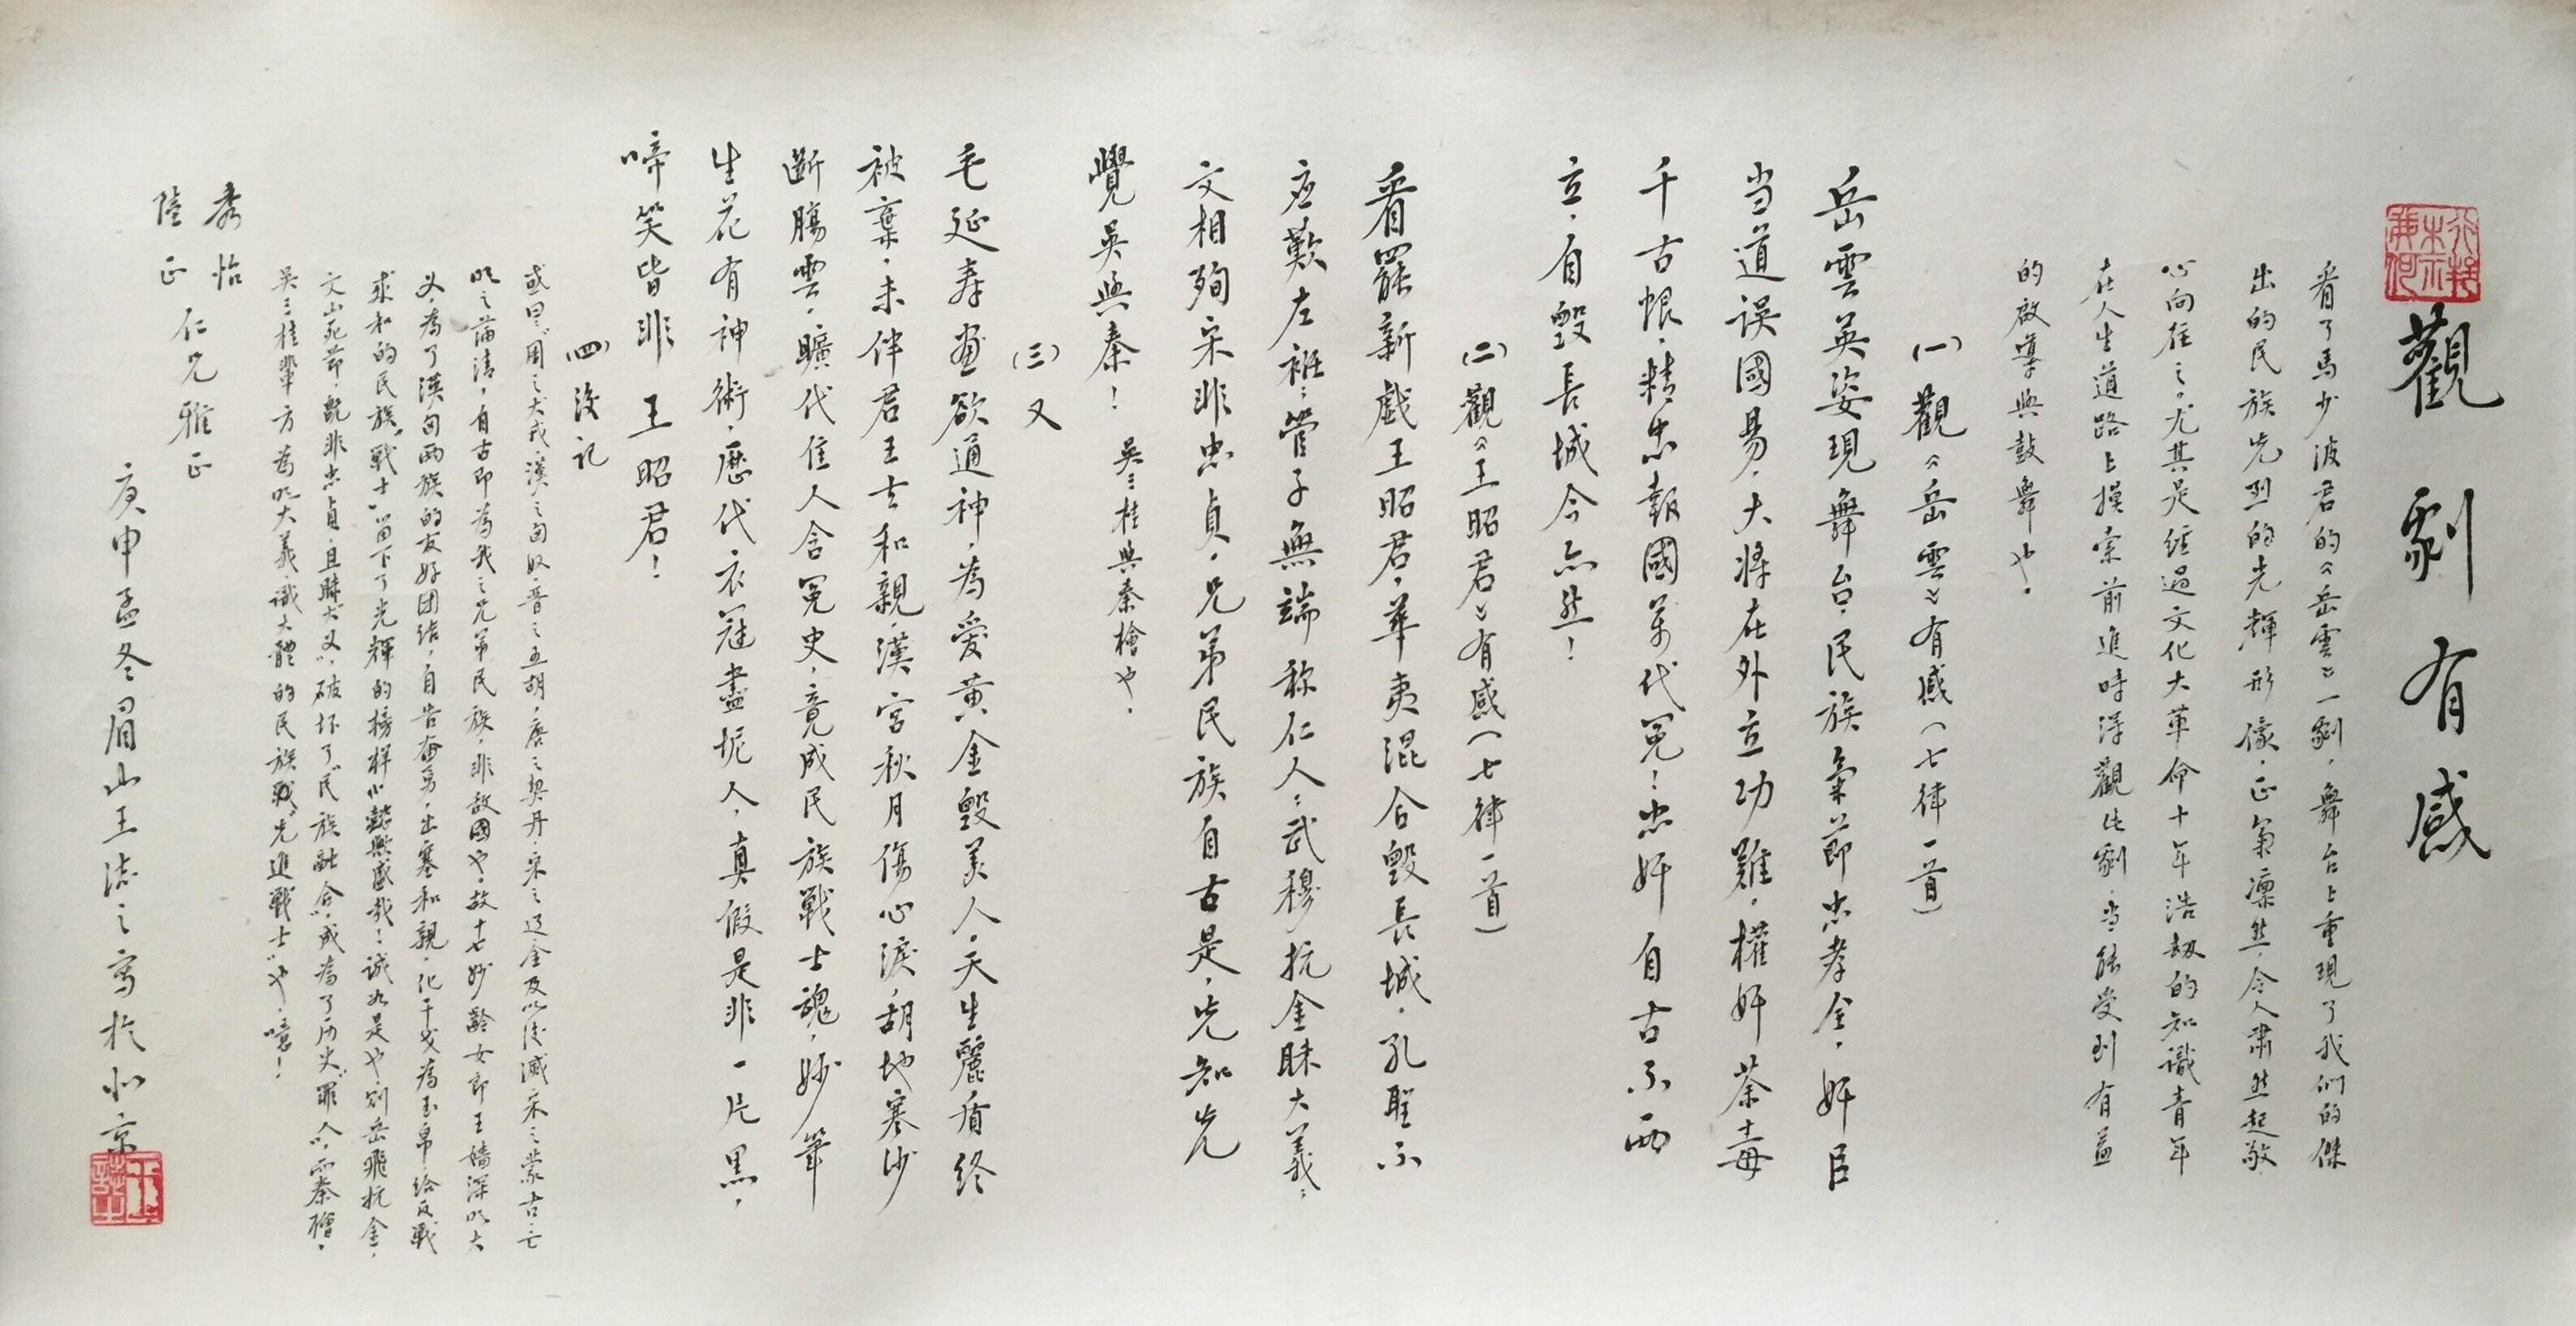 觀劇有感
看了馬少波君的《岳雲》一劇，舞台上重現了我们的傑
出的民族先烈的光輝形像，正氣凛然，令人肅然起敬，
心向往之，尤其是经過文化大革命十年浩劫的知識青年
在人生道路上摸索前進時得觀此劇，当能受到有益
的啟導與鼓舞也。
(一) 觀《岳雲》有感(七律一首)
岳雲英姿現舞台，民族氣節忠孝全，奸臣
当道误國易，大將在外立功難，權奸荼毒
千古恨，精忠報國萬代冤！忠奸自古不两
立，自毀長城今亦然！
(二) 觀《王昭君》有感(七律一首)
看罷新戲王昭君，華夷混合毀長城，孔聖不
应歎左袵；管子無端称仁人；武穆抗金昧大義；
文相殉宋非忠貞，兄弟民族自古是，先知先
覺吳與秦！ 吳三桂與秦檜也。
(三) 又
毛延寿画欲通神，為愛黄金毀美人，天生麗盾终
被棄，未伴君王去和親，漢宮秋月傷心淚，胡地寒沙
断腸雲，曠代佳人含冤史，竟成民族戰士魂，妙筆
生花有神術，歷代衣冠盡坭人，真假是非一片黑，
啼笑皆非王昭君！
(四) 後记
或曰：周之犬戎，漢之匈奴，晋之五胡，唐之契丹，宋之辽金及以後滅宋之蒙古；亡
明之满清，自古即為我之兄弟民族，非敌國也，故十七妙齡女郎王嬙深明大
义，為了漢匈两族的友好团结，自告奋勇，出塞和親，化干戈為玉帛，给反戰
求和的民族“戰士”留下了光輝的榜样，懿歟盛哉！诚如是也，则岳飛抗金，
文山死節，既非忠貞，且昧大义，破坏了“民族融合”，成為了历史“罪人”，而秦檜，
吳三桂輩方為明大義，識大體的民族戰“先進戰士”也，噫！
秀怡
陸正 仁兄雅正
庚申孟冬眉山王志之寫於北京